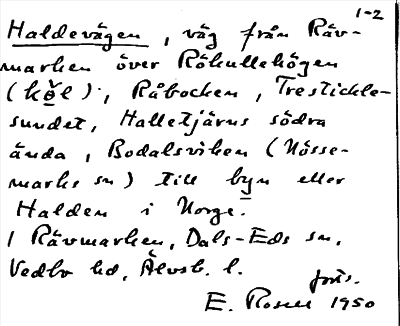 1-2
Haldevägen, väg från Räv-
marken över Rökullehögen
(köl), Råbocken, Trestickle-
sundet, Halletjärns södra
ända, Bodalsviken (Nösse-
marks sn) till byn eller
Halden i Norge.
I Rävmarken, Dals-Eds sn,
Vedbo hd, Älvsb. l.
forts.
E. Rosell 1950